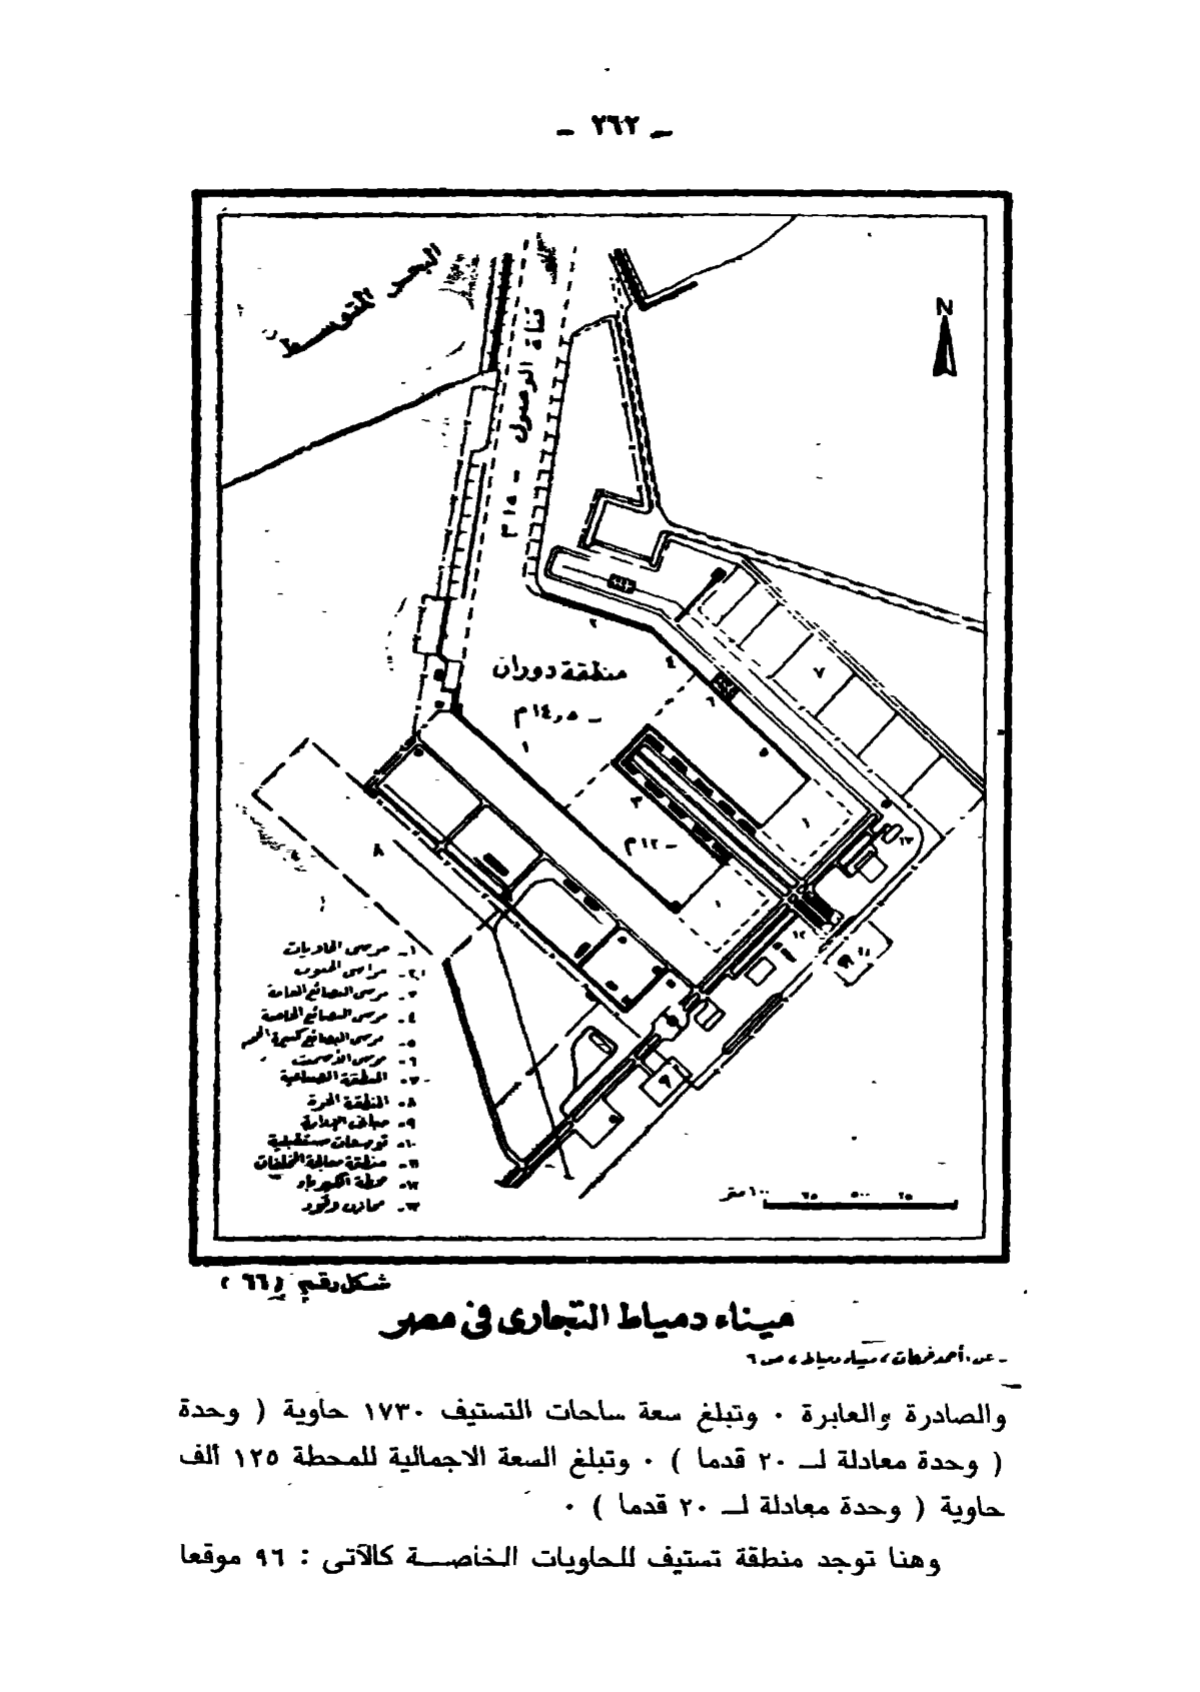 ـ ٢٦٢ ـ
البحر المتوسط
N
قناة الوصول
ـ ١٥م
٢
٤
منطقة دوران
ـ ١٤٫٥م
١
٦
٧
٥
٣
ـ ١٢م
١٠
١٣
٨
١٠
١٢
١١
٩
١ـ مرسى الحاويات
٢ـ مراسى الحبوب
٣ـ مرسى البضائع العامة
٤ـ مرسى البضائع الخاصة
٥ـ مرسى البضائع كبيرة الحجم
٦ـ مرسى الأسمنت
٧ـ المنطقة الصناعية
٨ـ المنطقة الحرة
٩ـ مبانى الإدارة
١٠ـ توسعات مستقبلية
١١ـ منطقة معالجة المخلفات
١٢ـ محطة الكهرباء
١٣ـ مخازن وقود
متر
شكل رقم ( ٦٦ )
ميناء دمياط التجارى فى مصر
ـ عن : أحمد فرحات ، ميناء دمياط ، ص ٦
والصادرة والعابرة ٠ وتبلغ سعة ساحات التستيف ١٧٣٠ حاوية ( وحدة
( وحدة معادلة لــ ٢٠ قدما ) ٠ وتبلغ السعة الاجمالية للمحطة ١٢٥ ألف
حاوية ( وحدة معادلة لــ ٢٠ قدما ) ٠
وهنا توجد منطقة تستيف للحاويات الخاصــة كالآتى : ٩٦ موقعا